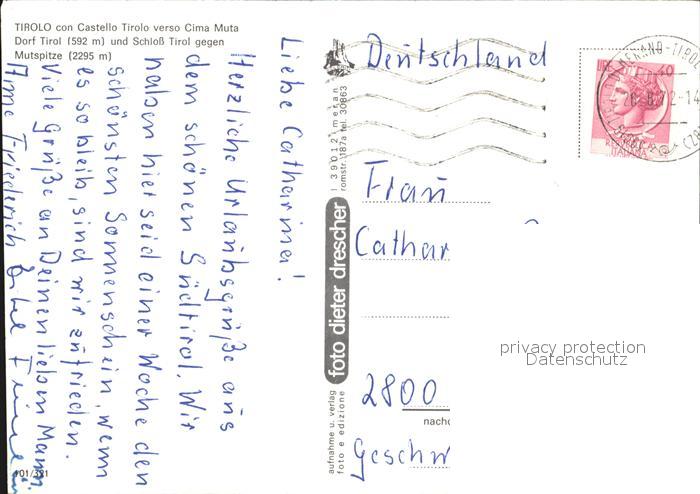 TIROLO con Castello Tirolo verso Cima Muta
Dorf Tirol (592 m) und Schloß Tirol gegen
Mutspitze (2295 m)
Liebe Catharina!
Herzliche Urlaubsgrüße aus
dem schönen Südtirol. Wir
haben hier seid einer Woche den
schönsten Sonnenschein, wenn
es so bleib, sind wir zufrieden.
Viele Grüße an Deinen lieben Mann.
Friederich
101/321
aufnahme u. verlag
foto e edizione
foto dieter drescher
I 39012 meran
romstr. 187a tel. 30863
Deutschland
Frau
Cathar
2800
nach
Geschw
MERANO-TIROL
40
privacy protection
Datenschutz